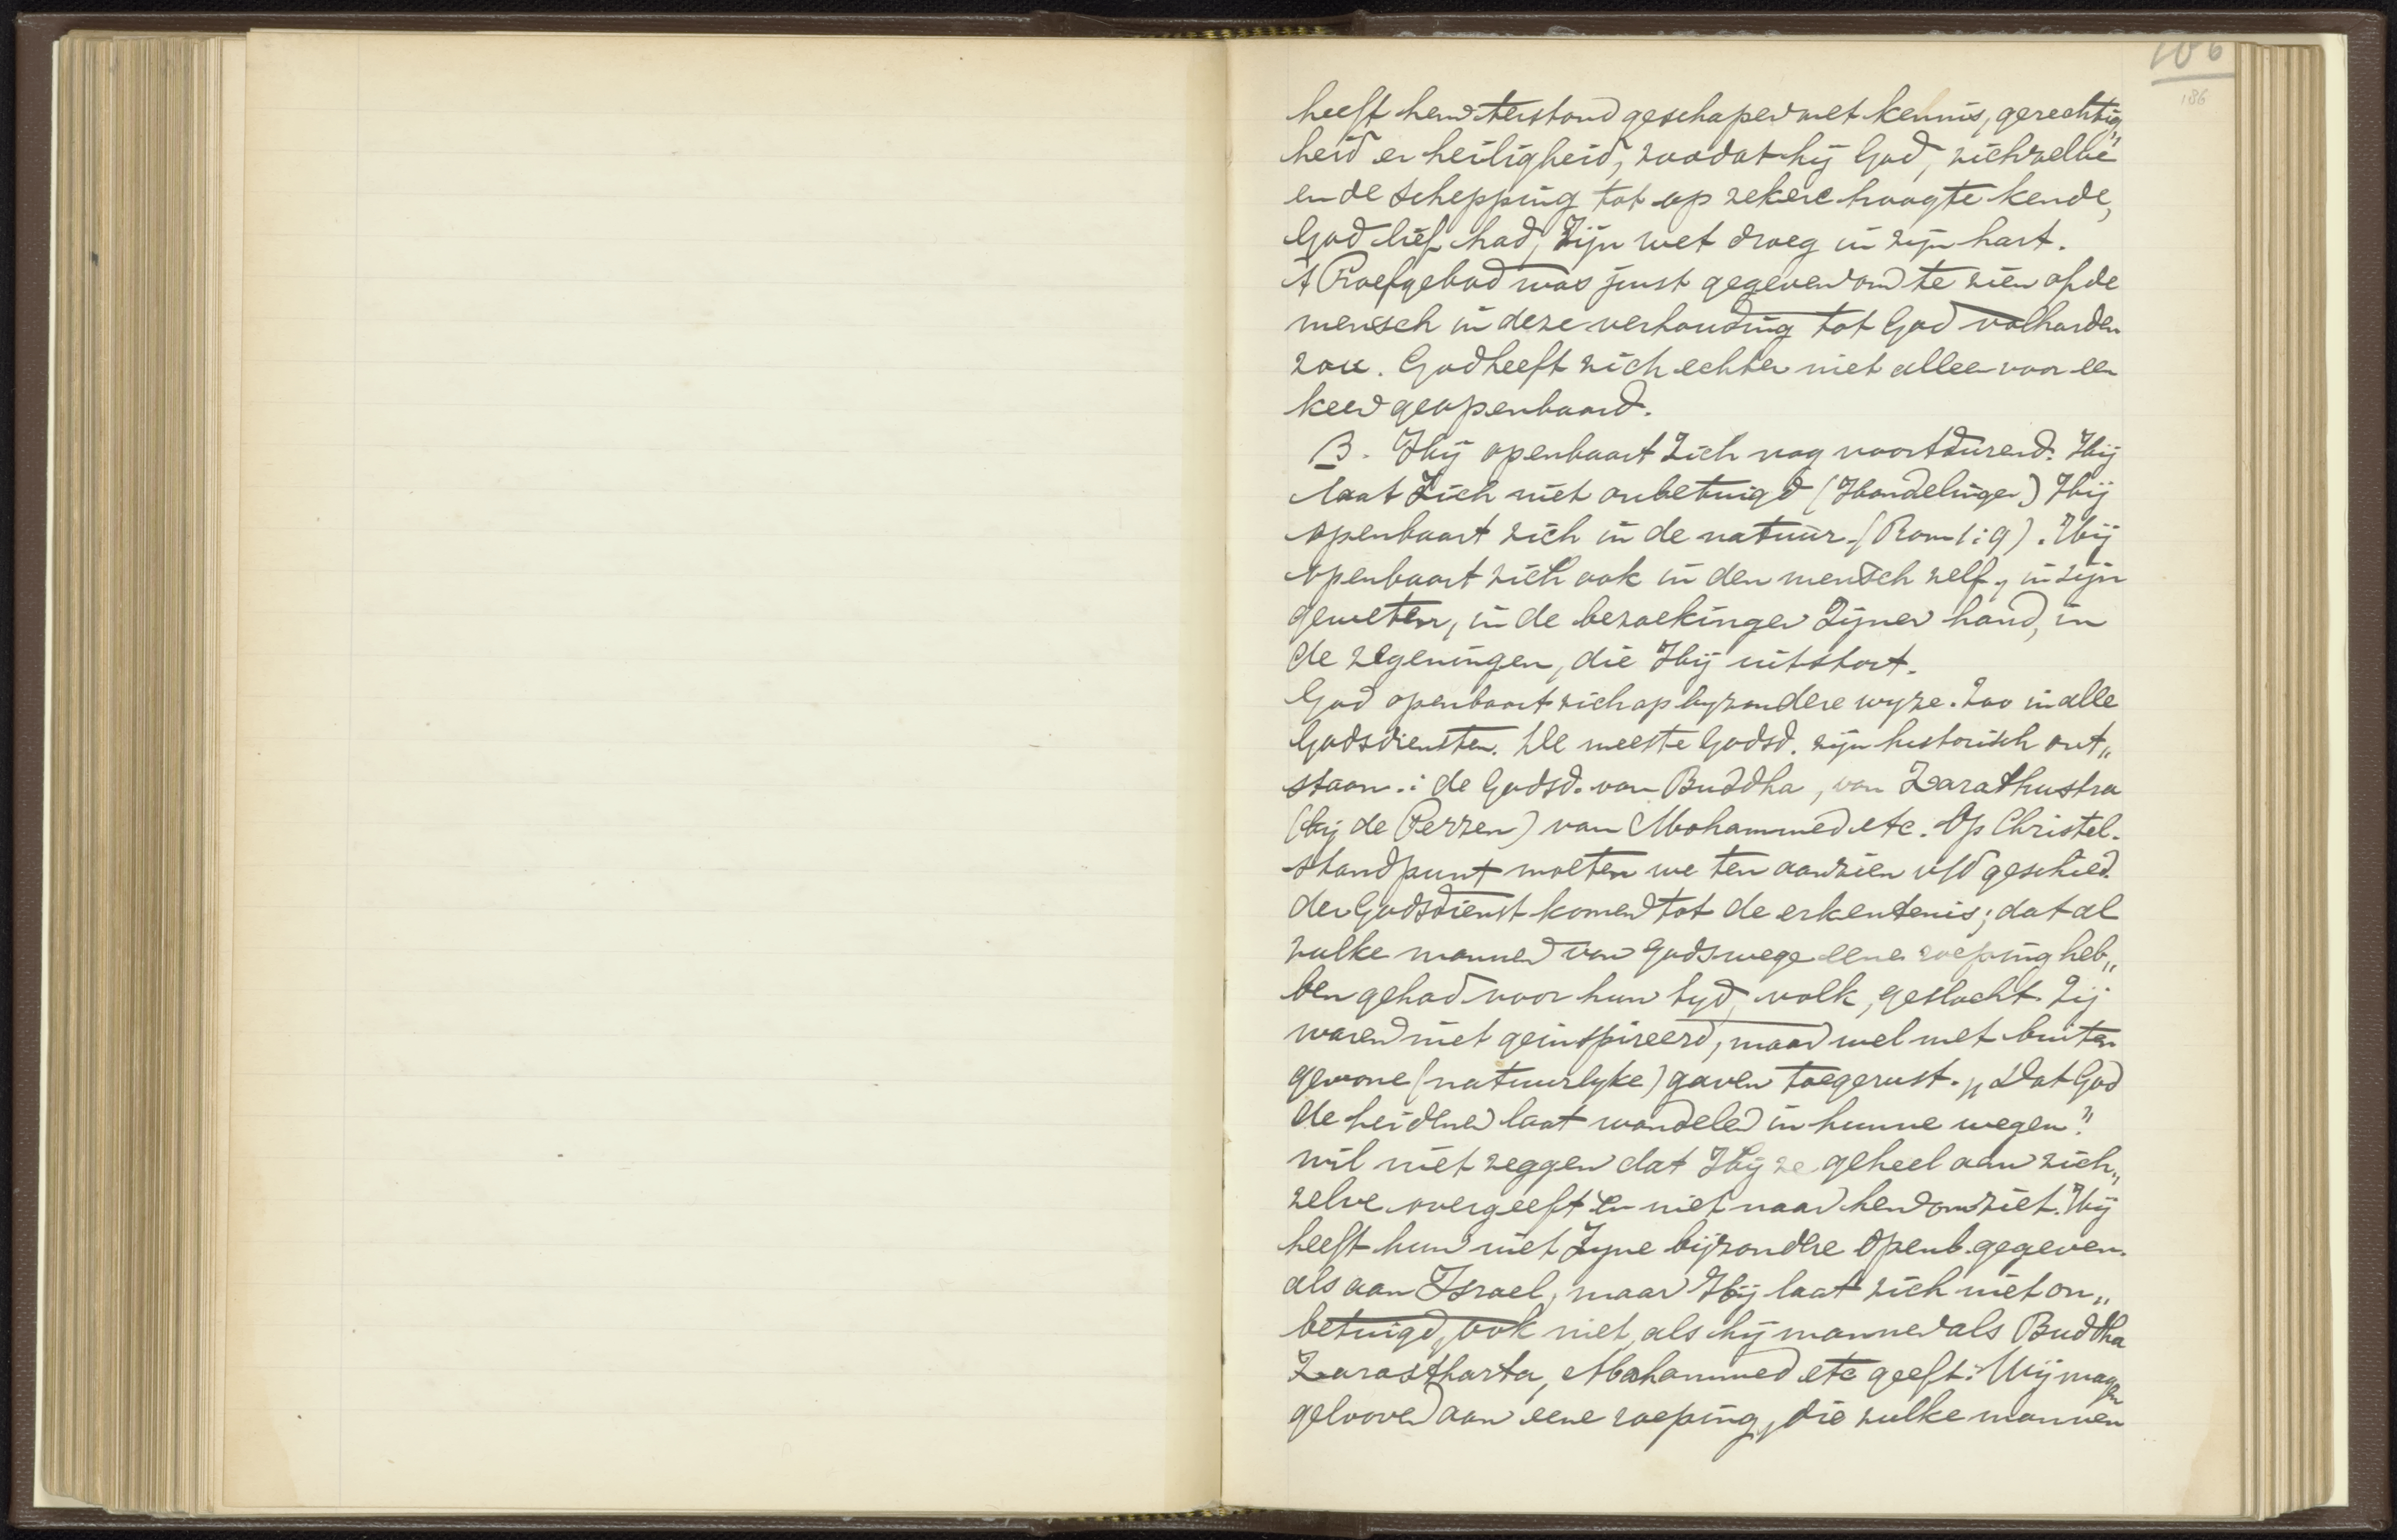 106
186
heeft hem terstond geschapen met kennis, gerechtig„
heid en heiligheid, zoodat hij God, zichzelve
en de schepping tot op zekere hoogte kende,
God lief had, Zijn wet droeg in zijn hart.
't Proefgebod was juist gegeven om te zien of de
mensch in deze verhouding tot God volharden
zou. God heeft zich echter niet alleen voor een
keer geopenbaard.
B. Hij openbaart Zich nog voortdurend. Hij
laat Zich niet onbetuigd (Handelingen) Hij
openbaart zich in de natuur (Rom 1:9). Hij
openbaart zich ook in den mensch zelf, in zijn
geweten, in de bezoekingen Zijner hand, in
de zegeningen, die Hij uitstort.
God openbaart zich op byzondere wyze. Zoo in alle
Godsdiensten. De meeste Godsd. zijn historisch ont„
staan.: de Godsd. van Buddha, van Zarathustra
(bij de Perzen) van Mohammed etc. Op Christel.
standpunt moeten we ten aanzien v/d geschied.
der Godsdienst komen tot de erkentenis; dat al
zulke mannen van Godswege eene roeping heb„
ben gehad voor hun tyd, volk, geslacht. Zij
waren niet geinspireerd, maar wel met buiten
gewone (natuurlyke) gaven toegerust. „Dat God
de heidenen laat wandelen in hunne wegen"
wil niet zeggen dat Hij ze geheel aan zich„
zelve overgeeft en niet naar hen omziet. Hij
heeft hun niet Zyne bijzondere Openb. gegeven.
als aan Israel, maar Hij laat zich niet on„
betuigd, ook niet, als hij mannen als Buddha
Zarastharta, Mohammed etc geeft. Wij mogen
gelooven aan eene roeping, die zulke mannen